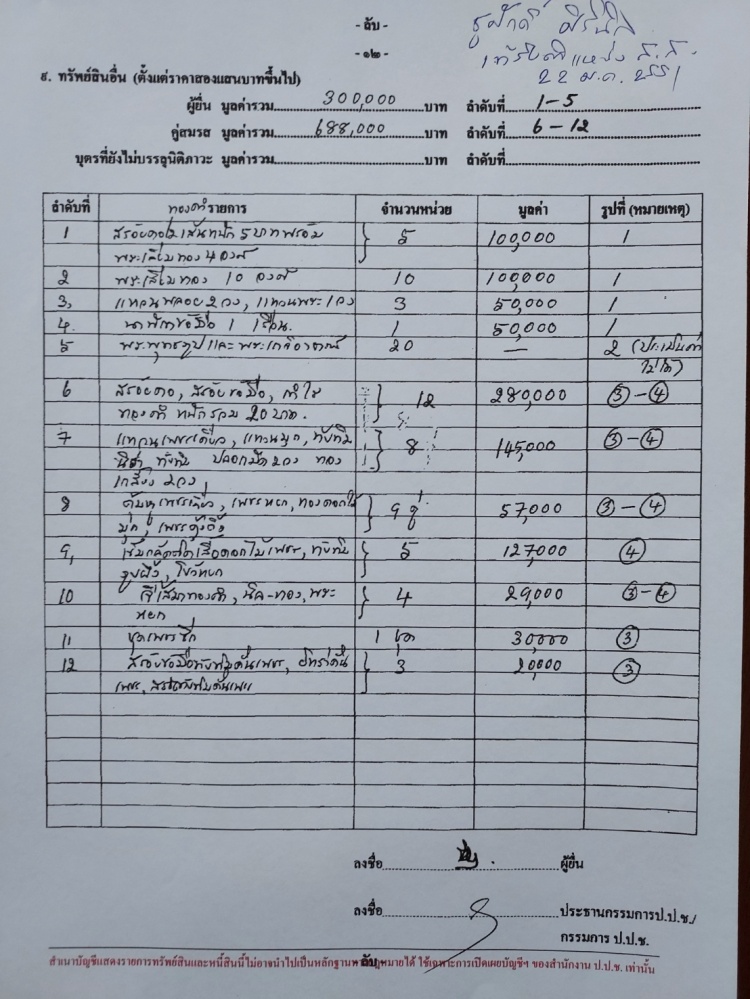 - ลับ -
ชูศักดิ์ ศิรินิล
- ๑๒ -
เข้ารับตำแหน่ง ส.ส.
22 ม.ค. 2551
๙. ทรัพย์สินอื่น (ตั้งแต่ราคาสองแสนบาทขึ้นไป)
ผู้ยื่น มูลค่ารวม 300,000 บาท ลำดับที่ 1-5
คู่สมรส มูลค่ารวม 688,000 บาท ลำดับที่ 6-12
บุตรที่ยังไม่บรรลุนิติภาวะ มูลค่ารวม บาท ลำดับที่
ลำดับที่ ทองคำ รายการ จำนวนหน่วย มูลค่า รูปที่ (หมายเหตุ)
1 สร้อยคอ เส้นหนัก 5 บาท พร้อม 5 100,000 1
พระเลี่ยมทอง 4 องค์
2 พระเลี่ยมทอง 10 องค์ 10 100,000 1
3, แหวนพลอย 2 วง, แหวนพระ 1 วง 3 50,000 1
4. นาฬิกาข้อมือ 1 เรือน. 1 50,000 1
5 พระพุทธรูปและพระเกจิอาจารย์ 20 — 2 (ประเมินค่า
ไม่ได้)
6 สร้อยคอ, สร้อยข้อมือ, กำไล 12 280,000 3-4
ทองคำ หนักรวม 20 บาท.
7 แหวนเพชรเดี่ยว, แหวนมุก, ทับทิม 8 145,000 3-4
นิล, ทับทิม ปลอกมีด 2 วง ทอง
เกลี้ยง 2 วง,
8 ตุ้มหูเพชรเดี่ยว, เพชร หยก, ทองดอกไม้ 9 คู่ 57,000 3-4
มุก, เพชรตุ้งติ้ง
9, เข็มกลัดติดเสื้อดอกไม้เพชร, ทับทิม 5 127,000 4
รูปผึ้ง, โบว์หยก
10 จี้เสมาทองคำ, นิล-ทอง, พระ 4 29,000 3-4
หยก
11 ชุดเพชรซีก 1 ชุด 30,000 3
12 สร้อยข้อมือทับทิมคั่นเพชร, 3 20,000 3
เพชร, สร้อยทับทิมคั่นเพชร
ลงชื่อ ผู้ยื่น
ลงชื่อ ประธานกรรมการป.ป.ช./
กรรมการ ป.ป.ช.
- ลับ -
สำเนาบัญชีแสดงรายการทรัพย์สินและหนี้สินนี้ไม่อาจนำไปเป็นหลักฐานทางกฎหมายได้ ใช้เฉพาะการเปิดเผยบัญชีฯ ของสำนักงาน ป.ป.ช. เท่านั้น